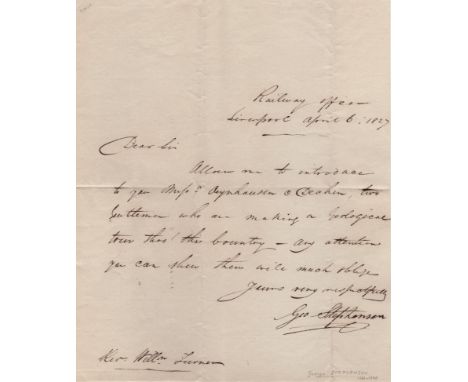 Railway office
Liverpool April 6: 1827
Dear Sir
Allow me to introduce
to you Mess.rs Oeynhausen & Dechen, two
Gentlemen who are making a Geological
tour thro' this Country – any attention
you can shew them will much oblige
Yours very respectfully
Geo Stephenson
Will.m Turner
George STEPHENSON